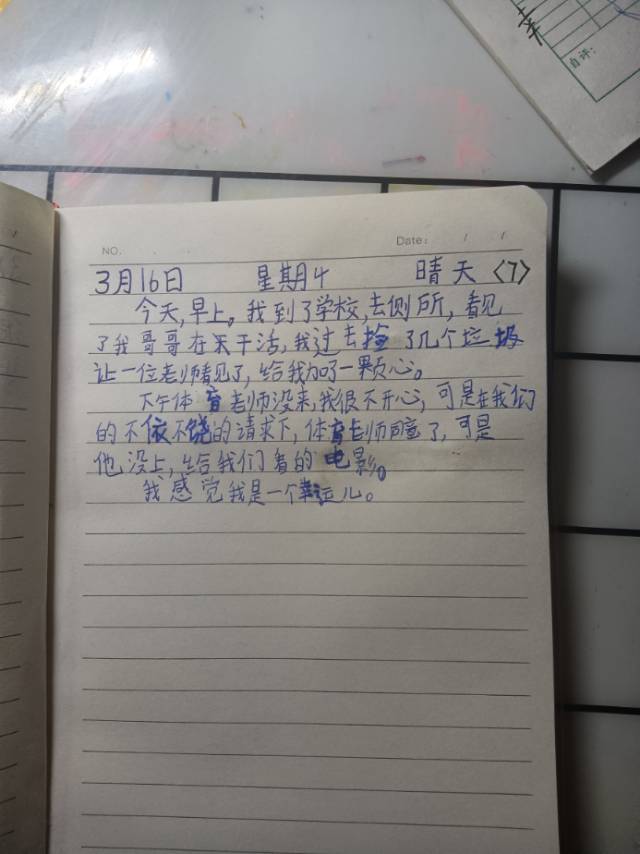 自评:
NO.
Date: / /
3月16日 星期4 晴天 〈7〉
今天,早上。我到了学校,去侧所,看见
了我哥哥在呆干活,我过去捡了几个垃圾
让一位老师看见了,给我加了一颗心。
下午体育老师没来,我很不开心,可是在我们
的不依不饶的请求下,体育老师同意了,可是
他没上,给我们看的电影。
我感觉我是一个幸运儿。